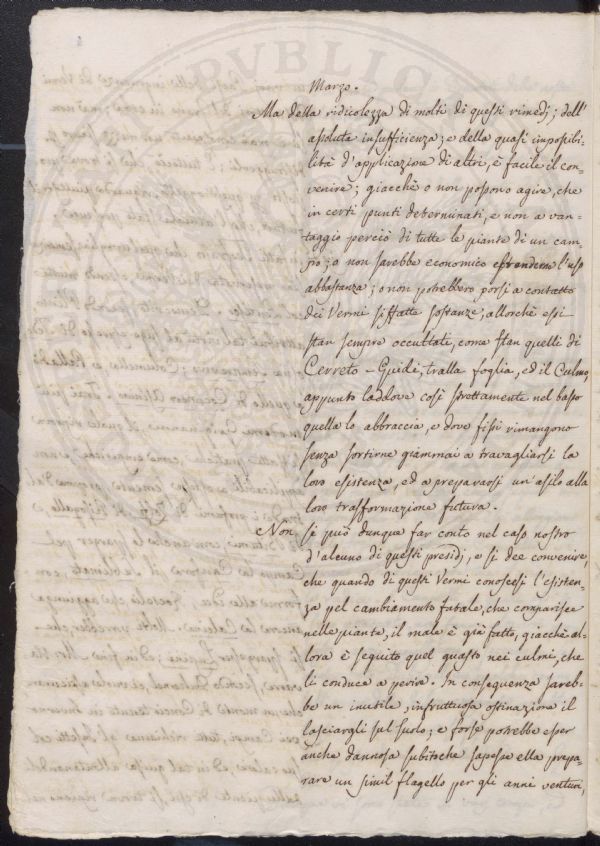 PVBLICA
Marzo.
Ma della ridicolezza di molti di questi rimedj; dell'
assoluta insufficienza; e della quasi impossibi-
lità d'applicazione di altri, è facile il con-
venire; giacchè o non possono agire, che
in certi punti determinati, e non a van-
taggio perciò di tutte le piante di un cam-
po; o non sarebbe economico l'uso
abbastanza; o non potrebbero porsi a contatto
dei Vermi siffatte sostanze, allorchè essi
stan sempre occultati, come stan quelli di
Cerreto-Guidi, tralla foglia, ed il Culmo,
appunto laddove così strettamente nel basso
quella lo abbraccia, e dove fissi rimangono
senza sortirne giammai a travagliarsi la
loro esistenza, ed a prepararsi un'asilo alla
loro trasformazione futura.
Non si può dunque far conto nel caso nostro
d'alcuno di questi presidj, e si dee convenire,
che quando di questi Vermi conoscesi l'esisten-
za pel cambiamento fatale, che comparisce
nelle piante, il male è già fatto, giacchè al-
lora è seguito quel guasto nei culmi, che
li conduce a perire. In conseguenza sareb-
be un inutile, infruttuosa ostinazione il
lasciargli sul suolo; e forse potrebbe esser
anche dannosa subitochè sapesse ella prepa-
rare un simil flagello per gli anni venturi,